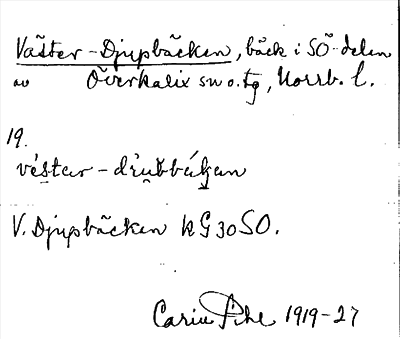 Väster-Djupbäcken, bäck i SÖ-delen
av Överkalix sn o. tg, Norrb. l.
19.
V. Djupbäcken KG 30 SO.
Carin Pihl 1919-27